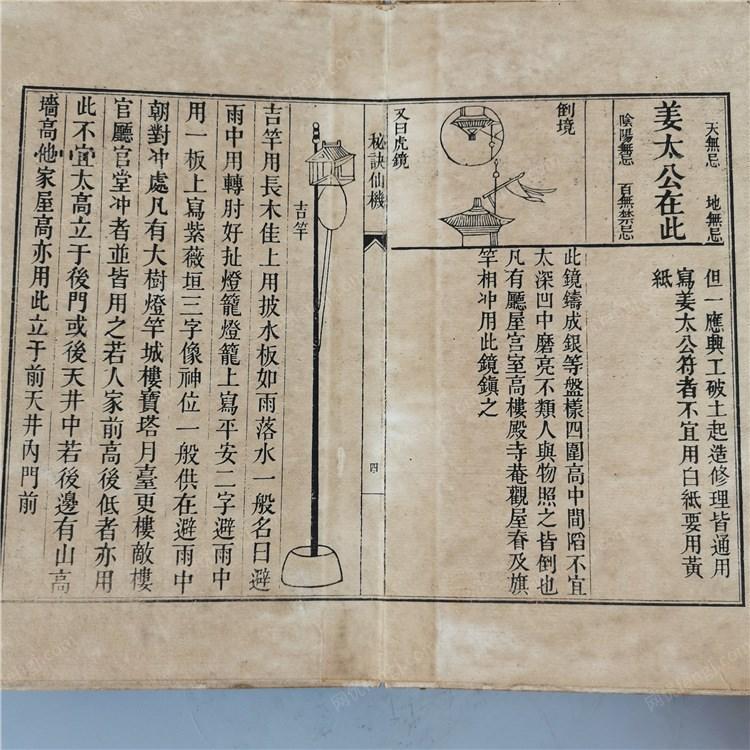 天無忌　地無忌
姜太公在此
陰陽無忌　百無禁忌
但一應興工破土起造修理皆通用
寫姜太公符者不宜用白紙要用黃
紙
倒境
又曰虎鏡
此鏡鑄成銀等盤樣四圍高中間陷不宜
太深凹中磨亮不類人與物照之皆倒也
凡有廳屋宫室高樓殿寺菴觀屋脊及旗
竿相冲用此鏡鎮之
秘訣仙機
四
吉竿
吉竿用長木佳上用披水板如雨落水一般名曰避
雨中用轉肘好扯燈籠燈籠上寫平安二字避雨中
用一板上寫紫薇垣三字像神位一般供在避雨中
朝對冲處凡有大樹燈竿城樓寶塔月臺更樓敵樓
官廳官堂冲者並皆用之若人家前高後低者亦用
此不宜太高立于後門或後天井中若後邊有山高
墻高他家屋高亦用此立于前天井內門前